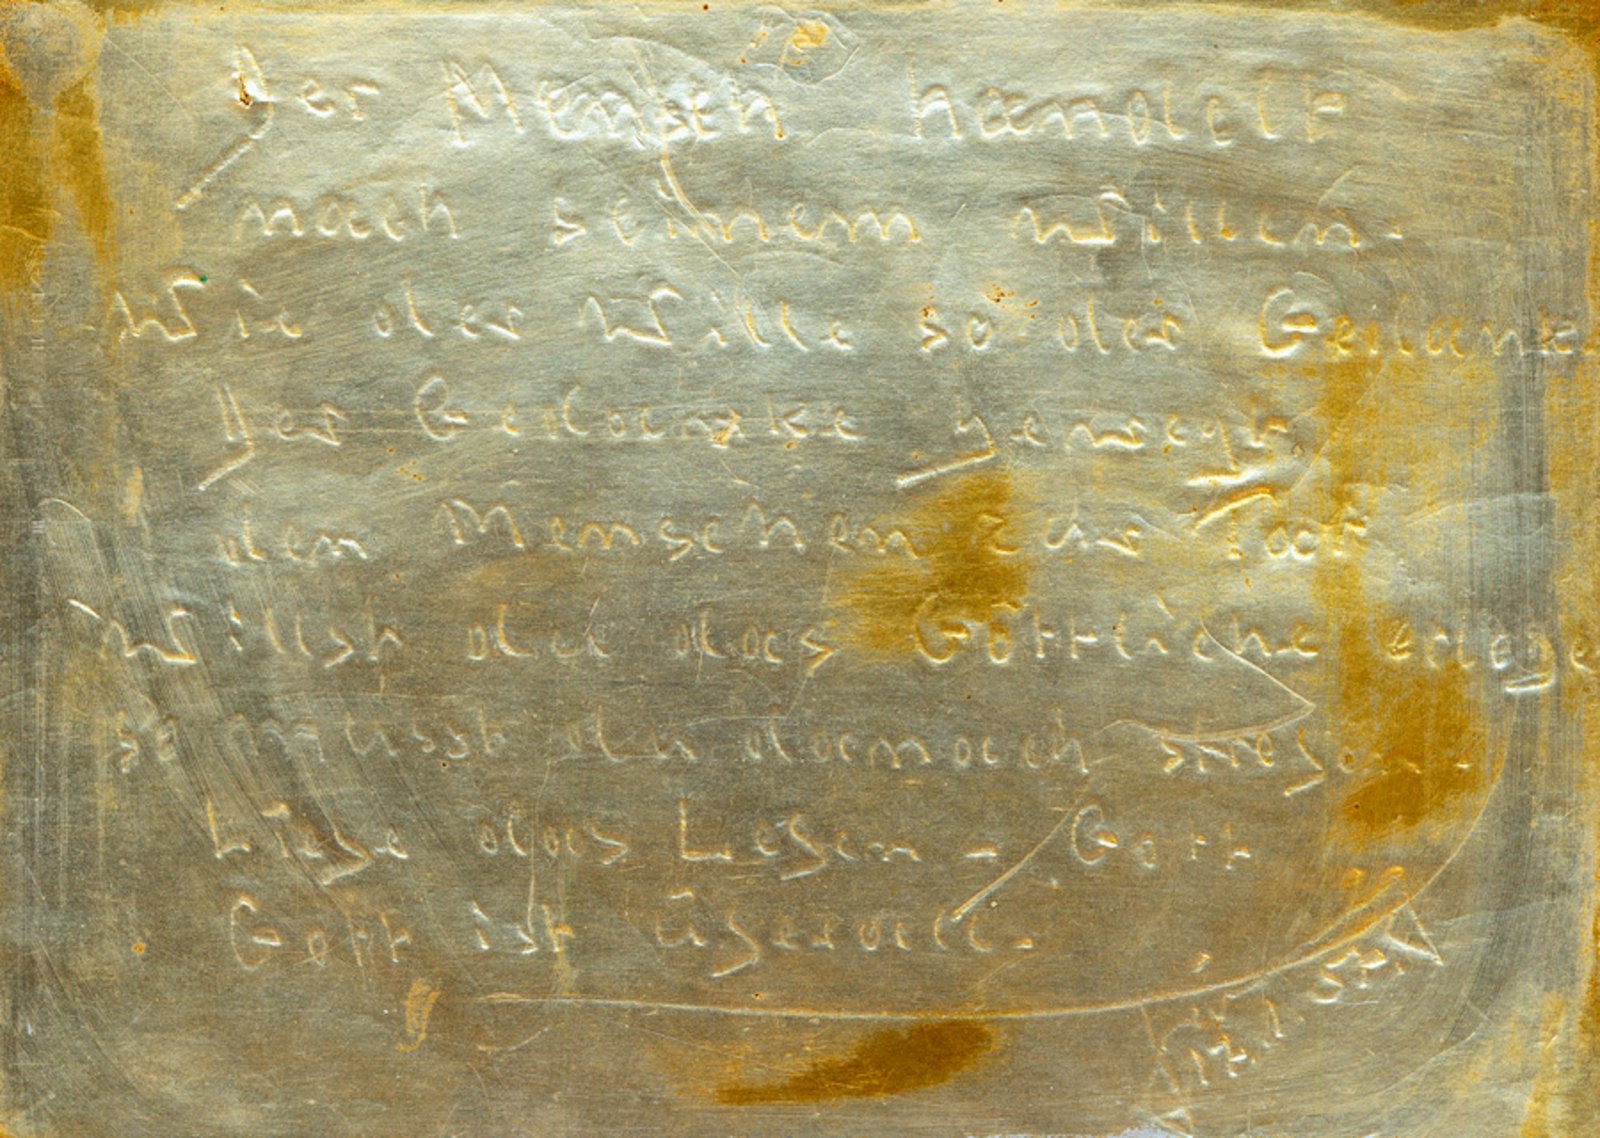 Der Mensch handelt
nach seinem Willen.
Wie der Wille so der Gedank
Der Gedanke
den Menschen zur Tat
Willst du das Göttliche
so musst du danach
Liebe das Leben - Gott
Gott ist überall.
17.1.